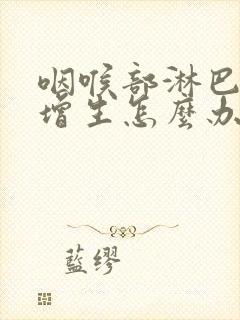 咽喉部淋巴
增生怎麼办
藍缪